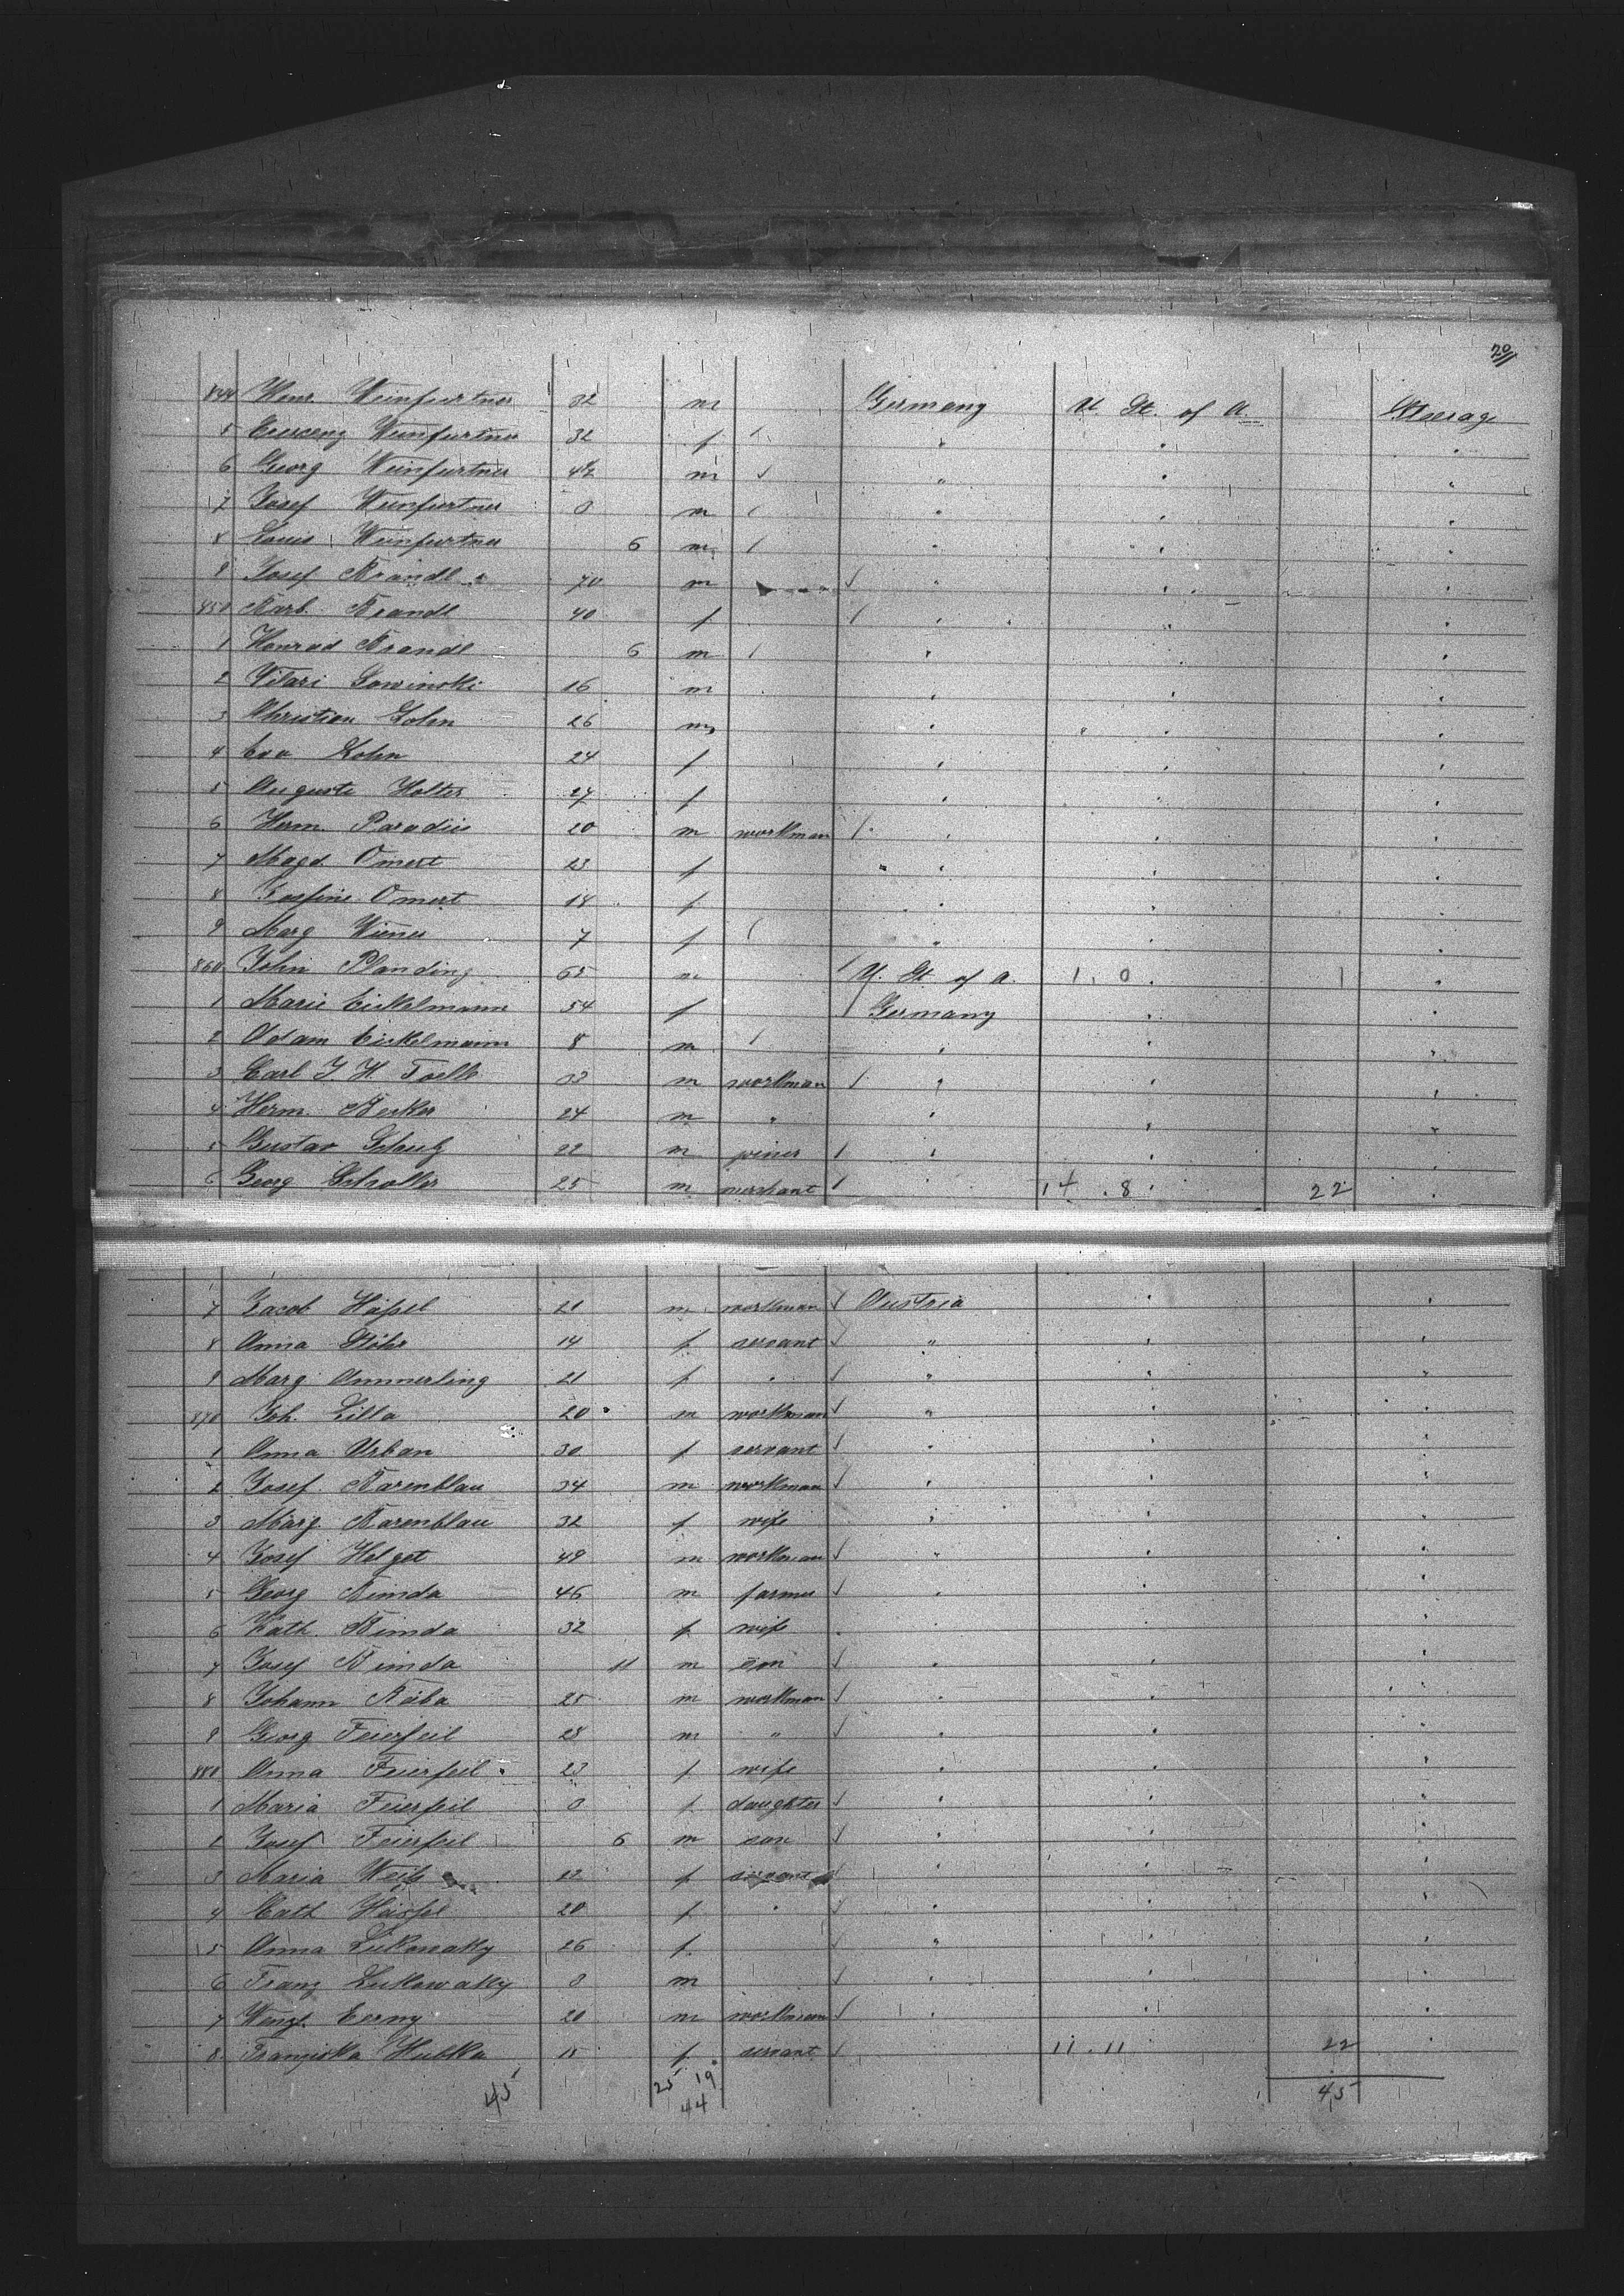 20
844 Konr. Weinfurtner 32 m Germany U St. of A. Steerage
5 Crescenz Weinfurtner 32 f " " "
6 Georg Weinfurtner 4½ m " " "
7 Josef Weinfurtner 3 m " " "
8 Louis Weinfurtner 6 m " " "
9 Josef Brandl 70 m " " "
850 Barb. Brandl 40 f " " "
1 Konrad Brandl 6 m " " "
2 Vilari Sawinski 16 m " " "
3 Christian Sohn 26 m " " "
4 Eva Sohn 24 f " " "
5 Auguste Holter 27 f " " "
6 Herm. Paradies 20 m workman " " "
7 Magd Omert 23 f " " "
8 Josefine Omert 14 f " " "
9 Marg Wiener 7 f " " "
860 John Planding 65 m U. St of A. 1. 0 1 "
1 Marie Eickelmann 54 f Germany " "
2 Adam Eickelmann 8 m " " "
3 Carl J. H. Toelle 33 m workman " " "
4 Herm. Becker 24 m " " " "
5 Gustav 22 m joiner " " "
6 Georg Scholler 25 m merchant " 14 . 8 22 "
7 Jacob Häfsel 21 m workman Austria " "
8 Anna Stöhr 14 f servant " " "
9 Marg Ammerling 21 f " " " "
870 Joh. Lilla 20 m workman " " "
1 Anna Urban 30 f servant " " "
2 Josef Barenblau 34 m workman " " "
3 Marg. Barenblau 32 f wife " " "
4 Josef Helget 49 m workman " " "
5 Georg Bimda 46 m farmer " " "
6 Kath. Bimda 32 f wife " " "
7 Josef Bimda 11 m son " " "
8 Johann Reiba 25 m workman " " "
9 Georg Feierfeil 28 m " " " "
880 Anna Feierfeil 23 f wife " " "
1 Maria Feierfeil 3 f daughter " " "
2 Josef Feierfeil 6 m son " " "
3 Maria Weifs 22 f servant " " "
4 Cath Häfsel 20 f " " " "
5 Anna Lukowatky 26 f " " "
6 Franz Lukowatky 3 m " " "
7 Wenzl. Cerny 20 m workman " " "
8 Franziska Hubka 18 f servant 11 . 11 22 "
45 25 19 45
44